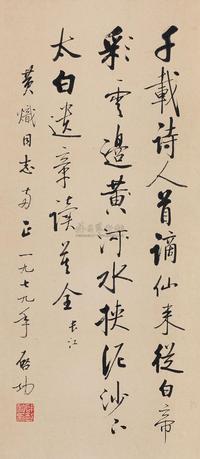 千載詩人首謫仙来從白帝
彩雲邊黄河水挾泥沙下
太白遺章讀莫全 長江
黄熾同志正 一九七九年 啓功